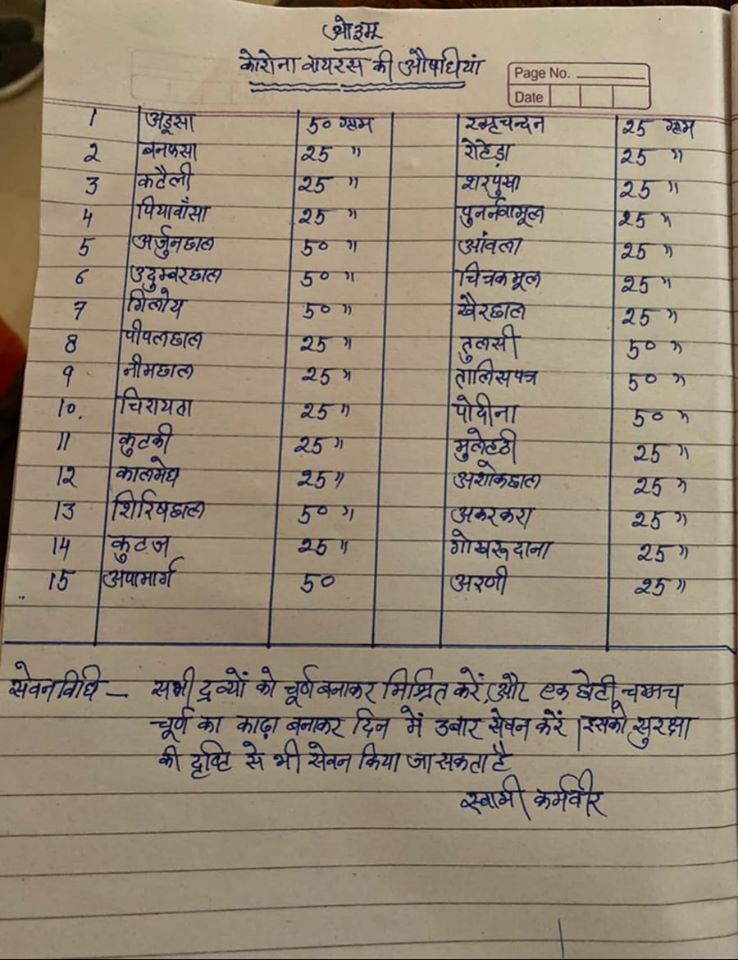 ओ३म्
कोरोना वायरस की औषधियां
Page No.
Date
1 अडूसा 50 ग्राम रक्तचन्दन 25 ग्राम
2 बनफसा 25 " रोहेड़ा 25 "
3 कटैली 25 " शरपुंखा 25 "
4 पियावाँसा 25 " पुनर्नवामूल 25 "
5 अर्जुनछाल 50 " आंवला 25 "
6 उदुम्बरछाल 50 " चित्रकमूल 25 "
7 गिलोय 50 " खैरछाल 25 "
8 पीपलछाल 25 " तुलसी 50 "
9 नीमछाल 25 " तालिसपत्र 50 "
10. चिरायता 25 " पोदीना 50 "
11 कुटकी 25 " मुलेहठी 25 "
12 कालमेघ 25 " अशोकछाल 25 "
13 शिरिषछाल 50 " अकरकरा 25 "
14 कुटज 25 " गोखरू दाना 25 "
15 अपामार्ग 50 अरणी 25 "
सेवन विधि — सभी द्रव्यों को चूर्ण बनाकर मिश्रित करें, और एक छोटी चम्मच
चूर्ण का काढ़ा बनाकर दिन में 3 बार सेवन करें । इसको सुरक्षा
की दृष्टि से भी सेवन किया जा सकता है
स्वामी कर्मवीर